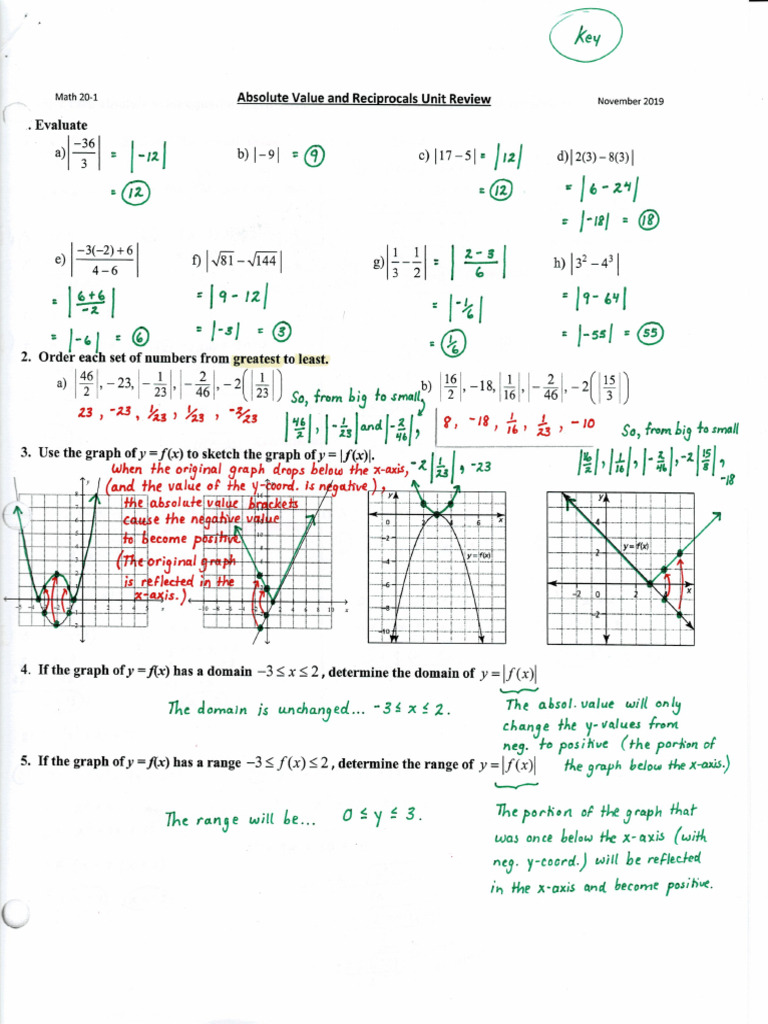 Key
Math 20-1
Absolute Value and Reciprocals Unit Review
November 2019
. Evaluate
a) |-36/3| = |-12|
= 12
b) |-9| = 9
c) |17-5| = |12|
= 12
d) |2(3)-8(3)|
= |6-24|
= |-18| = 18
e) |(-3(-2)+6)/(4-6)|
= |(6+6)/-2|
= |-6| = 6
f) |√81-√144|
= |9-12|
= |-3| = 3
g) |1/3-1/2| = |(2-3)/6|
= |-1/6|
= 1/6
h) |3²-4³|
= |9-64|
= |-55| = 55
2. Order each set of numbers from greatest to least.
a) |46/2|, -23, |-1/23|, |-2/46|, -2(|1/23|)
23, -23, 1/23, 1/23, -2/23
So, from big to small,
|46/2|, |-1/23| and |-2/46|,
-2|1/23|, -23
b) |16/2|, -18, |1/16|, |-2/46|, -2(|15/3|)
8, -18, 1/16, 1/23, -10
So, from big to small
|16/2|, |1/16|, |-2/46|, -2|15/8|,
-18
3. Use the graph of y = f(x) to sketch the graph of y = |f(x)|.
When the original graph drops below the x-axis,
(and the value of the y-coord. is negative),
the absolute value brackets
cause the negative value
to become positive.
(The original graph
is reflected in the
x-axis.)
y
x
y
0
6
x
-2
-4
-6
-8
-10
y = f(x)
y
4
2
y = f(x)
-2
0
2
x
-2
4. If the graph of y = f(x) has a domain -3 ≤ x ≤ 2, determine the domain of y = |f(x)|
The domain is unchanged... -3 ≤ x ≤ 2.
The absol. value will only
change the y-values from
neg. to positive (the portion of
the graph below the x-axis.)
5. If the graph of y = f(x) has a range -3 ≤ f(x) ≤ 2, determine the range of y = |f(x)|
The range will be... 0 ≤ y ≤ 3.
The portion of the graph that
was once below the x-axis (with
neg. y-coord.) will be reflected
in the x-axis and become positive.